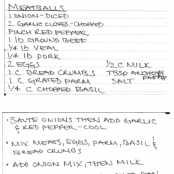 MEATBALLS
1 ONION - DICED
2 GARLIC CLOVES - CHOPPED
PINCH RED PEPPER
1 lb GROUND BEEF
1/4 lb VEAL
1/4 lb PORK
2 EGGS 1/2 C MILK
1 C BREAD CRUMBS TBSP ANCHOVY PASTE
1 C GRATED PARM SALT
1/4 C CHOPPED BASIL
• SAUTE ONIONS THEN ADD GARLIC
& RED PEPPER - COOL
• MIX MEATS, EGGS, PARM, BASIL &
BREAD CRUMBS
• ADD ONION MIX, THEN MILK